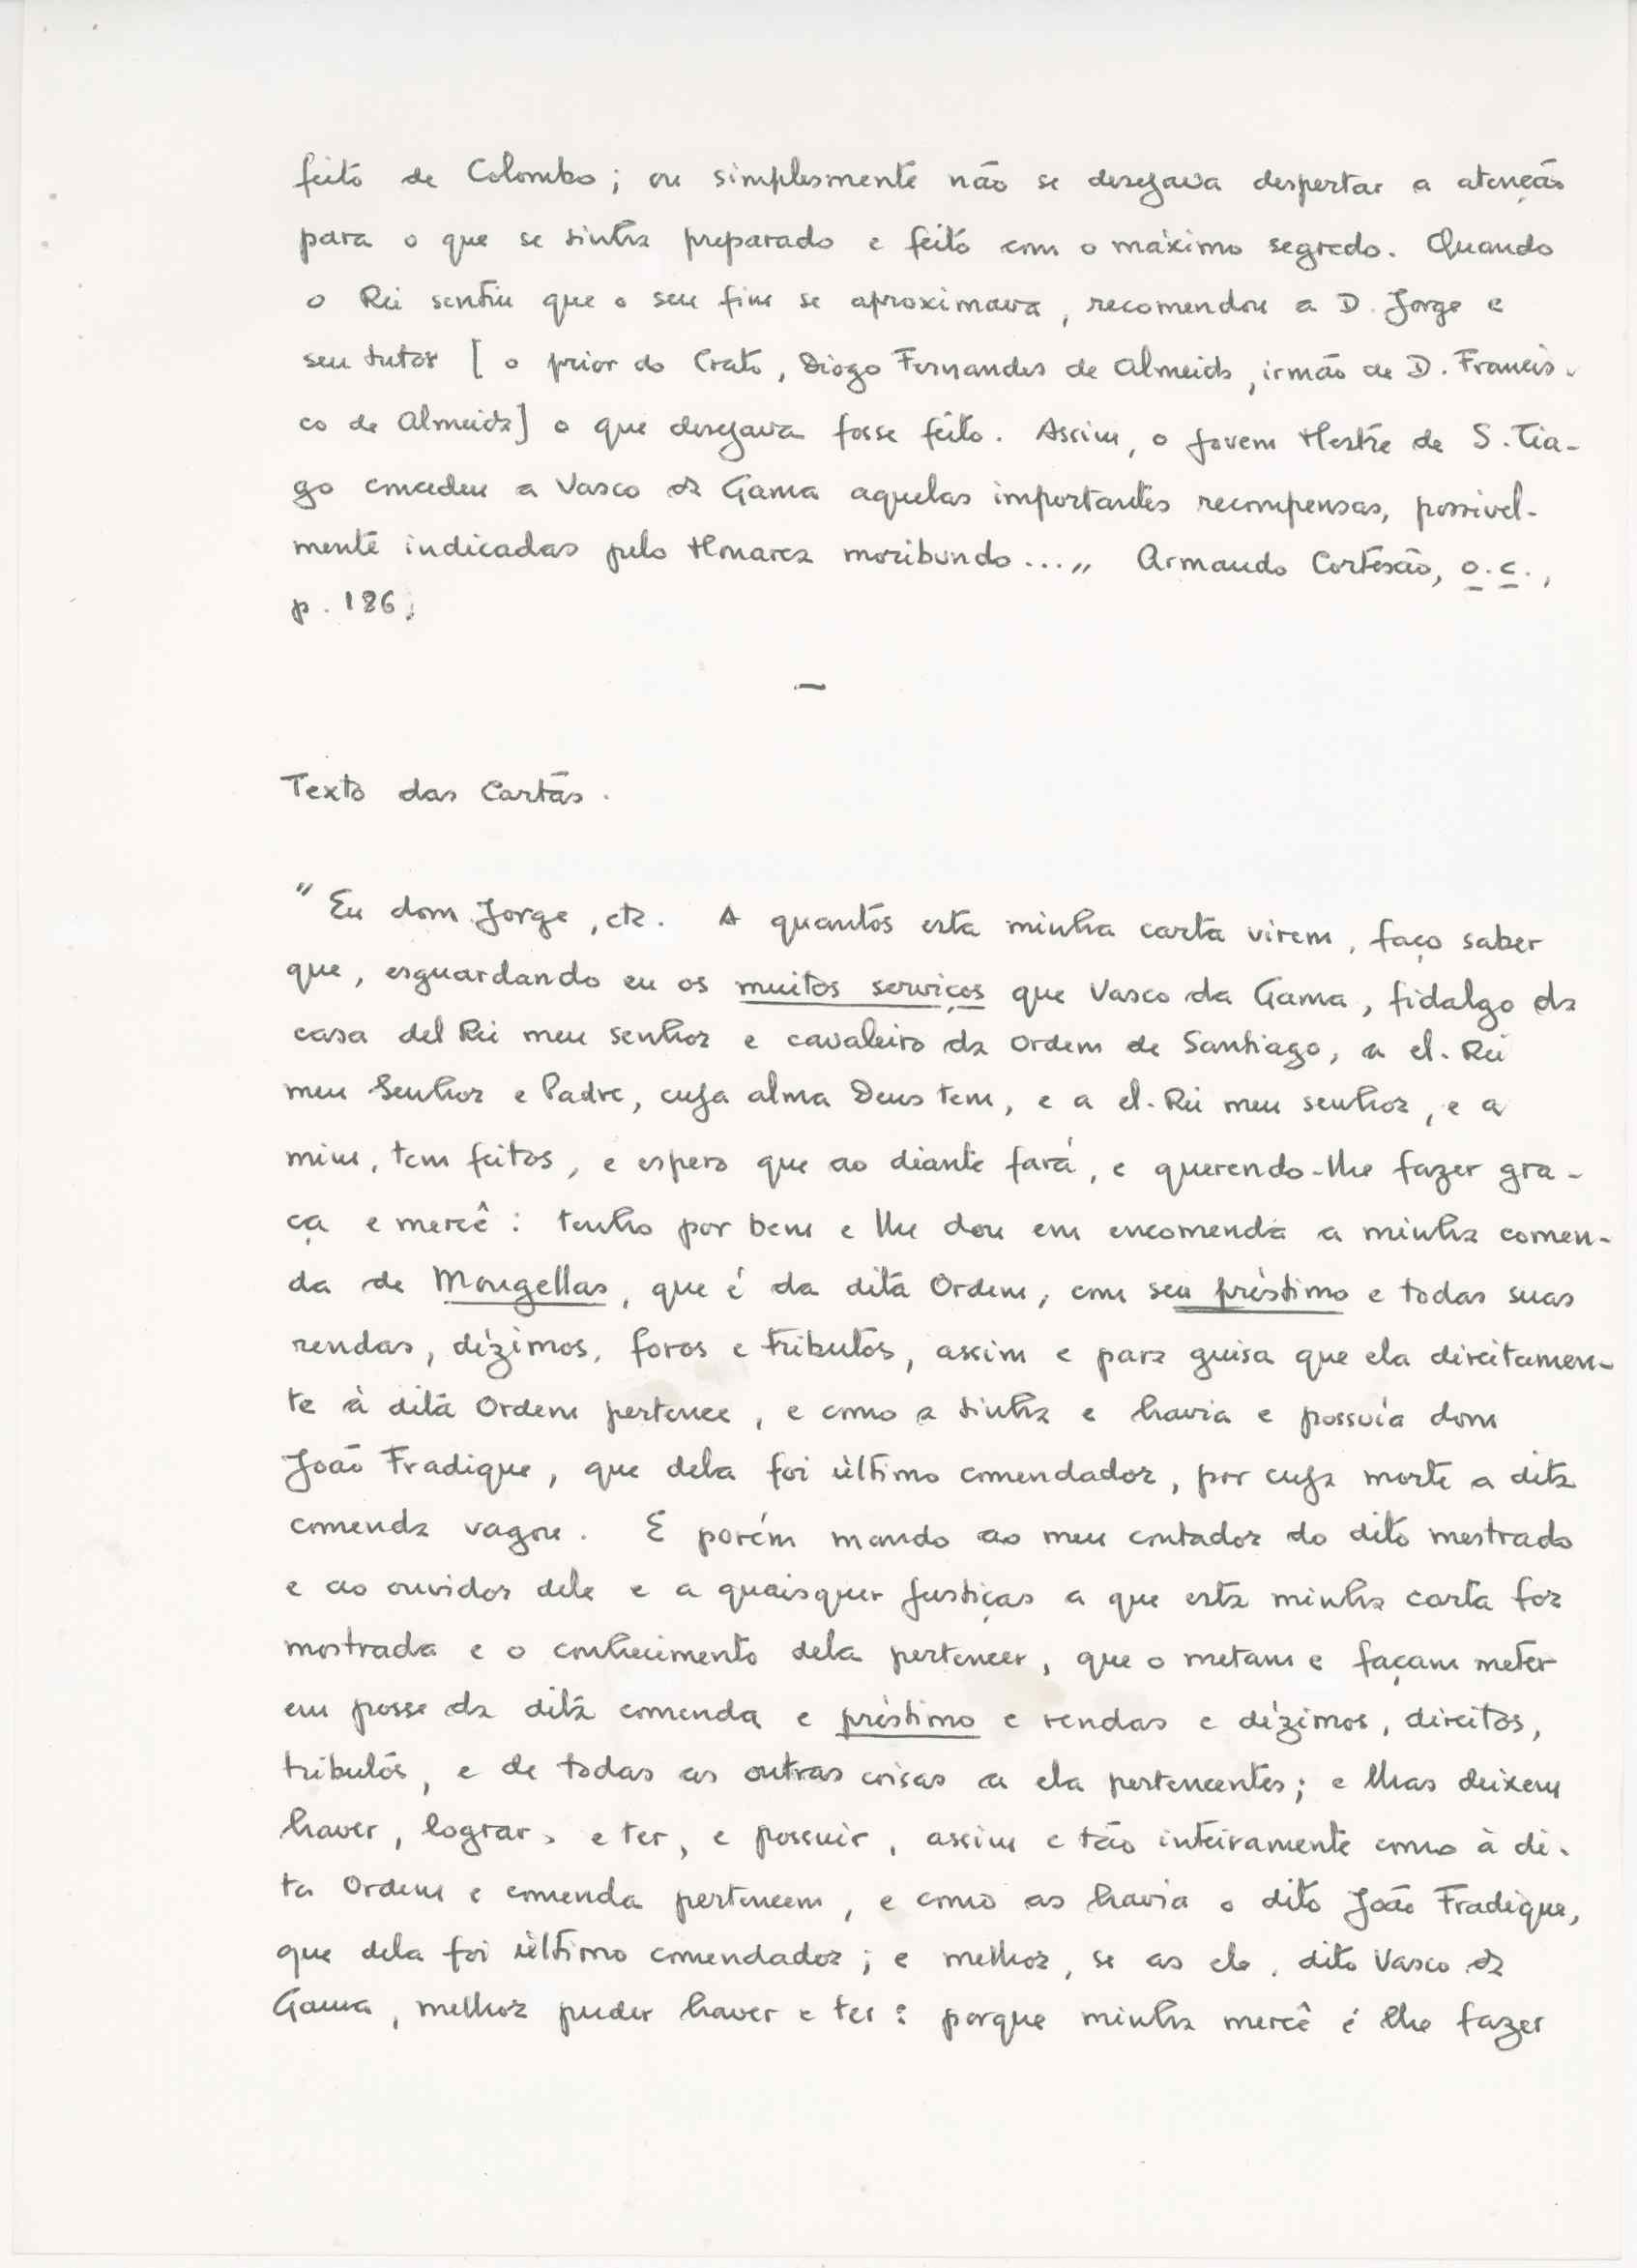 feito de Colombo; ou simplesmente não se desejava despertar a atenção
para o que se tinha preparado e feito com o máximo segredo. Quando
o Rei sentiu que o seu fim se aproximava, recomendou a D. Jorge e
seu tutor [o prior do Crato, Diogo Fernandes de Almeida, irmão de D. Francis-
co de Almeida] o que desejava fosse feito. Assim, o jovem Mestre de S. Tia-
go concedeu a Vasco da Gama aquelas importantes recompensas, possivel-
mente indicadas pelo Monarca moribundo...„ Armando Cortesão, o.c.,
p. 186.
—
Texto das Cartas.
"Eu dom Jorge, etc. A quantos esta minha carta virem, faço saber
que, esguardando eu os muitos serviços que Vasco da Gama, fidalgo da
casa del Rei meu senhor e cavaleiro da Ordem de Santiago, a el-Rei
meu Senhor e Padre, cuja alma Deus tem, e a el-Rei meu senhor, e a
mim, tem feitos, e espero que ao diante fará, e querendo-lhe fazer gra-
ça e mercê: tenho por bem e lhe dou em encomenda a minha comen-
da de Mougellas, que é da dita Ordem, com seu préstimo e todas suas
rendas, dízimos, foros e tributos, assim e para guisa que ela direitamen-
te à dita Ordem pertence, e como a tinha e havia e possuía dom
João Fradique, que dela foi último comendador, por cuja morte a dita
comenda vagou. E porém mando ao meu contador do dito mestrado
e ao ouvidor dele e a quaisquer justiças a que esta minha carta for
mostrada e o conhecimento dela pertencer, que o metam e façam meter
em posse da dita comenda e préstimo e rendas e dízimos, direitos,
tributos, e de todas as outras coisas a ela pertencentes; e lhas deixem
haver, lograr, e ter, e possuir, assim e tão inteiramente como à di-
ta Ordem e comenda pertencem, e como as havia o dito João Fradique,
que dela foi último comendador; e melhor, se as ele, dito Vasco da
Gama, melhor puder haver e ter: porque minha mercê é lhe fazer